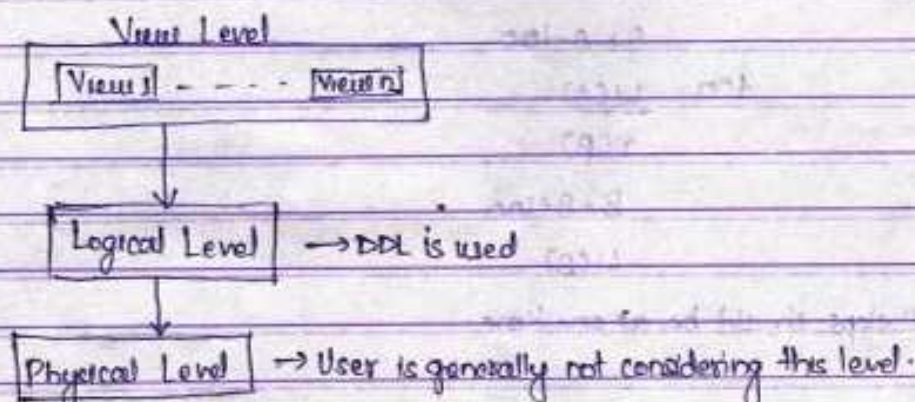 View Level
View 1 - - - - View n
Logical Level → DDL is used
Physical Level → User is generally not considering this level.